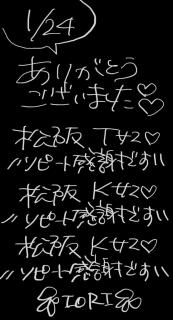 1/24
ありがとう
ございました♡♡
松阪 T廿2♡
リピート感謝です!!
松阪 K廿2♡
〃リピート感謝です!!
松阪 K廿2♡
〃リピート感謝です!!
IORI